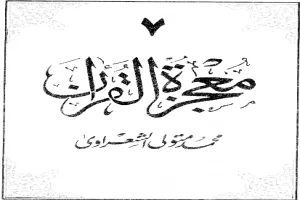 ٧
معجزة القرآن
محمد متولى الشعراوى